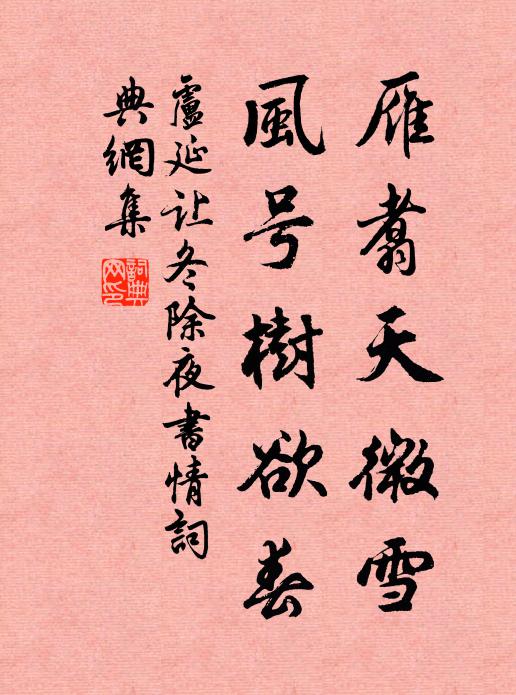 雁翥天微雪
風号樹欲春
盧延让冬除夜書情詞
典網集
詞典网印